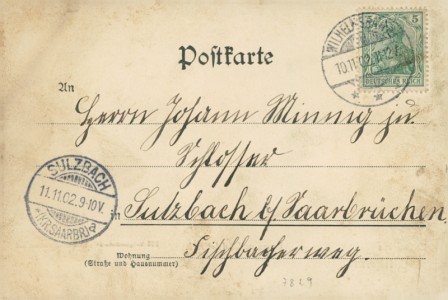 Postkarte
5
DEUTSCHES REICH
10.11.02
An
Herrn Johann Minnig zu
Schlosser
SULZBACH
11.11.02.9-10V.
*(KR.SAARBR.)
in Sulzbach b/Saarbrücken
Fischbacherweg.
Wohnung
(Straße und Hausnummer)
7829